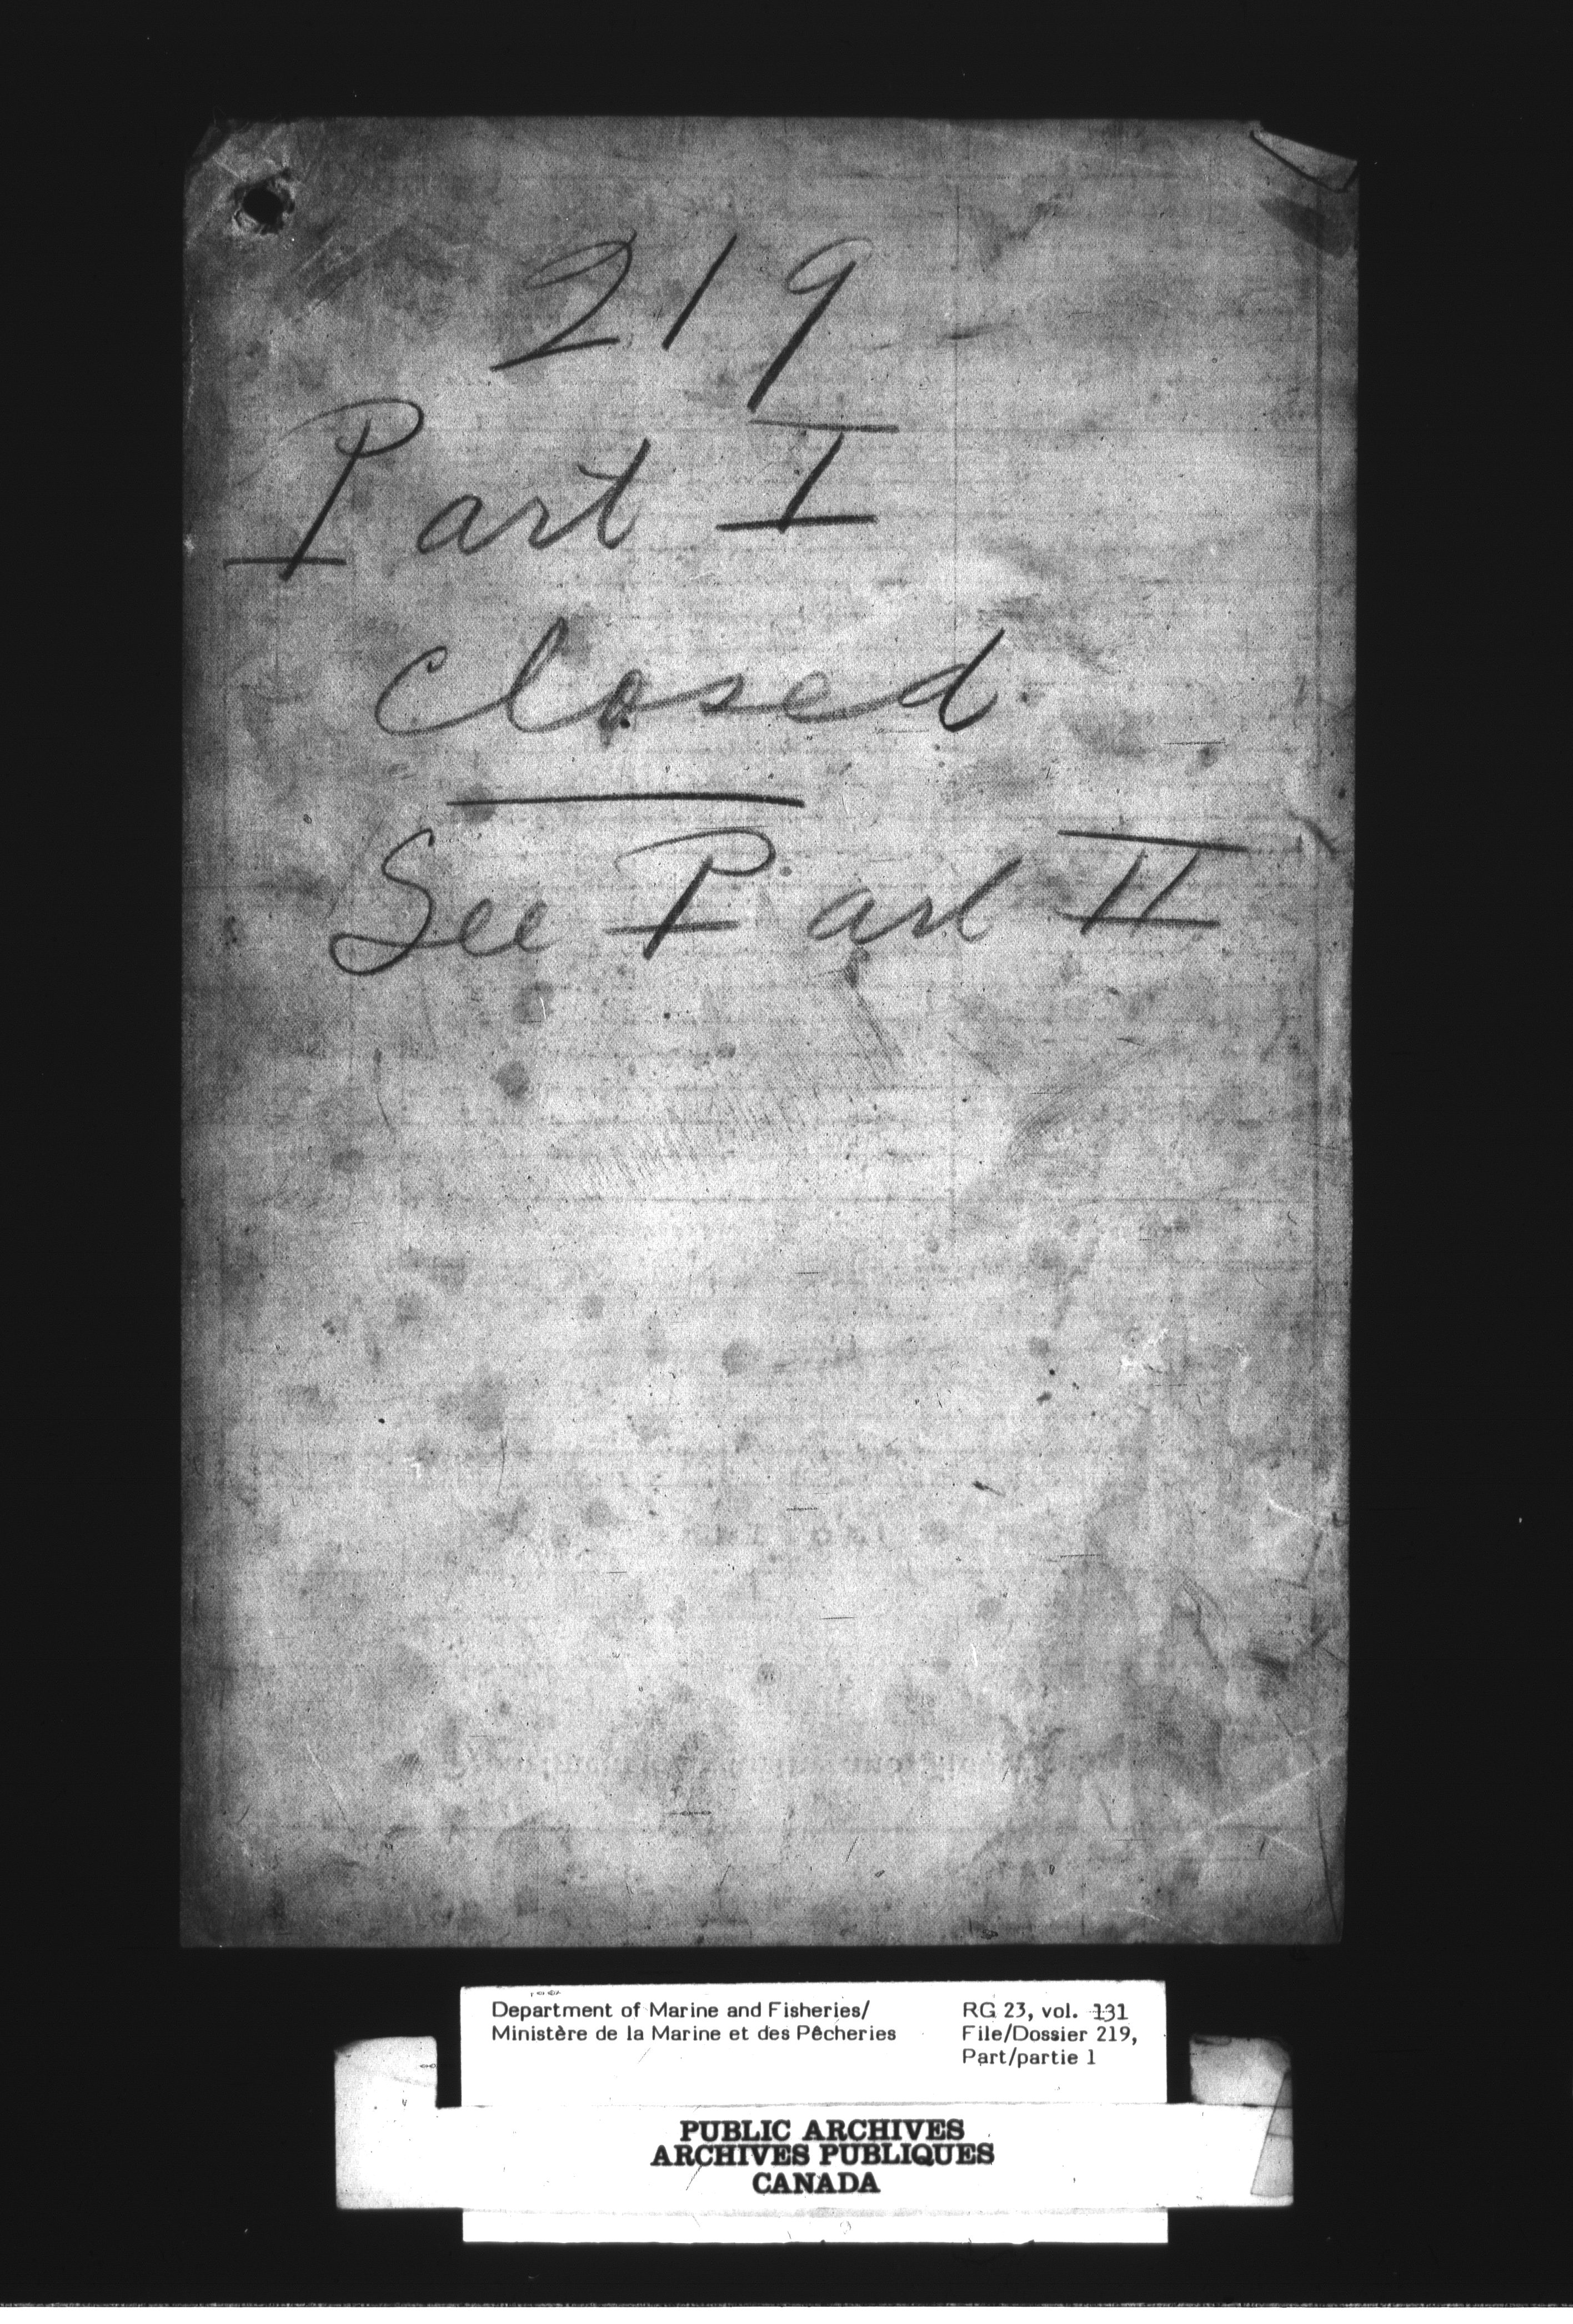 219
Part I
Closed.
See Part II
Department of Marine and Fisheries/
Ministère de la Marine et des Pêcheries
RG 23, vol. 131
File/Dossier 219,
Part/partie 1
PUBLIC ARCHIVES
ARCHIVES PUBLIQUES
CANADA